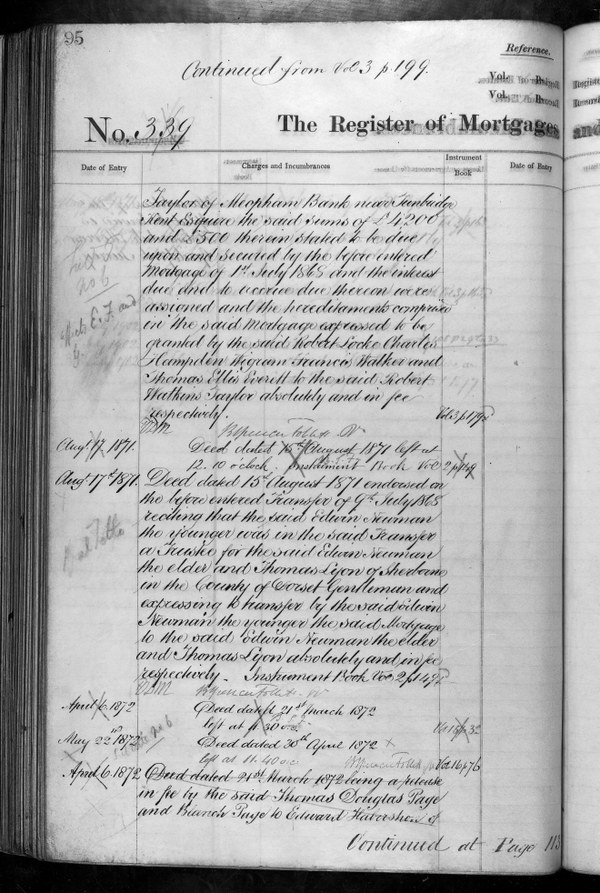 95
Continued from Vol 3 p 199.
Reference.
Vol. P.
Vol. P.
No. 339
The Register of Mortgages
Date of Entry
Charges and Incumbrances
Instrument Book
Date of Entry
Taylor of Meopham Bank near Tunbridge
Kent Esquire the said sums of £4200
and £500 therein stated to be due
upon and secured by the before entered
Mortgage of 1st July 1868 and the interest
due and to accrue due thereon were
assigned and the hereditaments comprised
in the said Mortgage expressed to be
granted by the said Robert Locke Charles
Hampden Wigram Francis Walker and
Thomas Ellis Everett to the said Robert
Watkins Taylor absolutely and in fee
respectively.
Vol 3 p 179
Augt 17, 1871.
Deed dated 15th August 1871 left at
12.10 oclock. Instrument Book Vol 2 p 49
Augt 17th 1871.
Deed dated 15th August 1871 endorsed on
the before entered Transfer of 9th July 1868
reciting that the said Edwin Newman
the younger was in the said Transfer
a Trustee for the said Edwin Newman
the elder and Thomas Lyon of Sherborne
in the County of Dorset Gentleman and
expressing to transfer by the said Edwin
Newman the younger the said Mortgage
to the said Edwin Newman the elder
and Thomas Lyon absolutely and in fee
respectively. Instrument Book Vol 2 p 49
April 6. 1872
Deed dated 21st March 1872
left at
32
May 22nd 1872
Deed dated 30th April 1872
left at 11.40
Vol 16 p 76
April 6. 1872
Deed dated 21st March 1872 being a release
in fee by the said Thomas Douglas Page
and Page to Edward of
Continued at Page 113